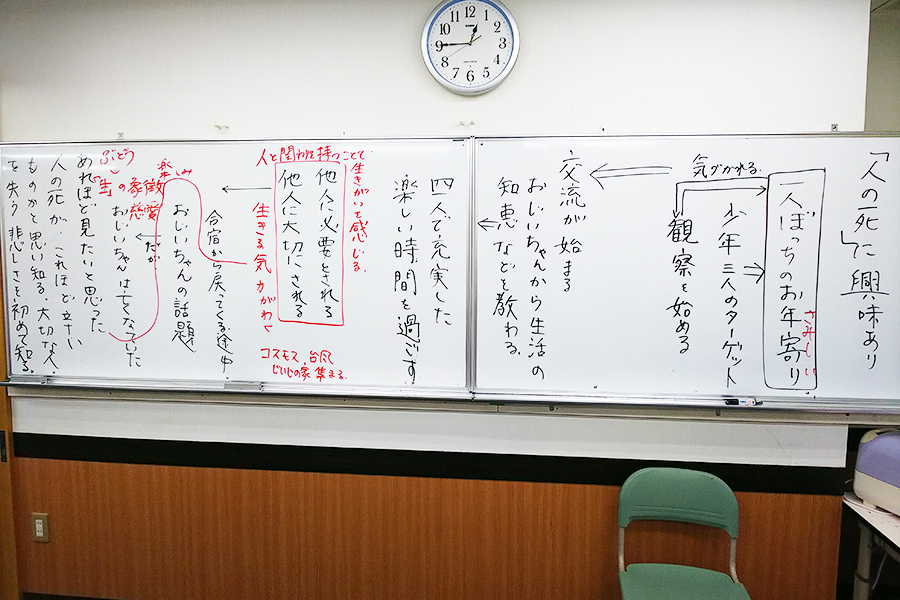 「人の死」に興味あり
一人ぼっちのお年寄り
さみしい
少年三人のターゲット
気づかれる
観察を始める
交流が始まる
おじいちゃんから生活の
知恵などを教わる。
四人で充実した
楽しい時間を過ごす
人と関わりを持つことで
生きがいを感じる。
他人に必要とされる
他人に大切にされる
生きる気力がわく
コスモス、台風
じいじの家 集まる。
合宿から戻ってくる途中、
おじいちゃんの話題
楽しみ
だが
おじいちゃんは亡くなていた
ぶどう
「生」の象徴
慈愛
あれほど見たいと思った
人の死が、これほど辛い
ものかと思い知る。大切な人
を失う悲しさを初めて知る。
12
1
2
3
4
5
6
7
8
9
10
11